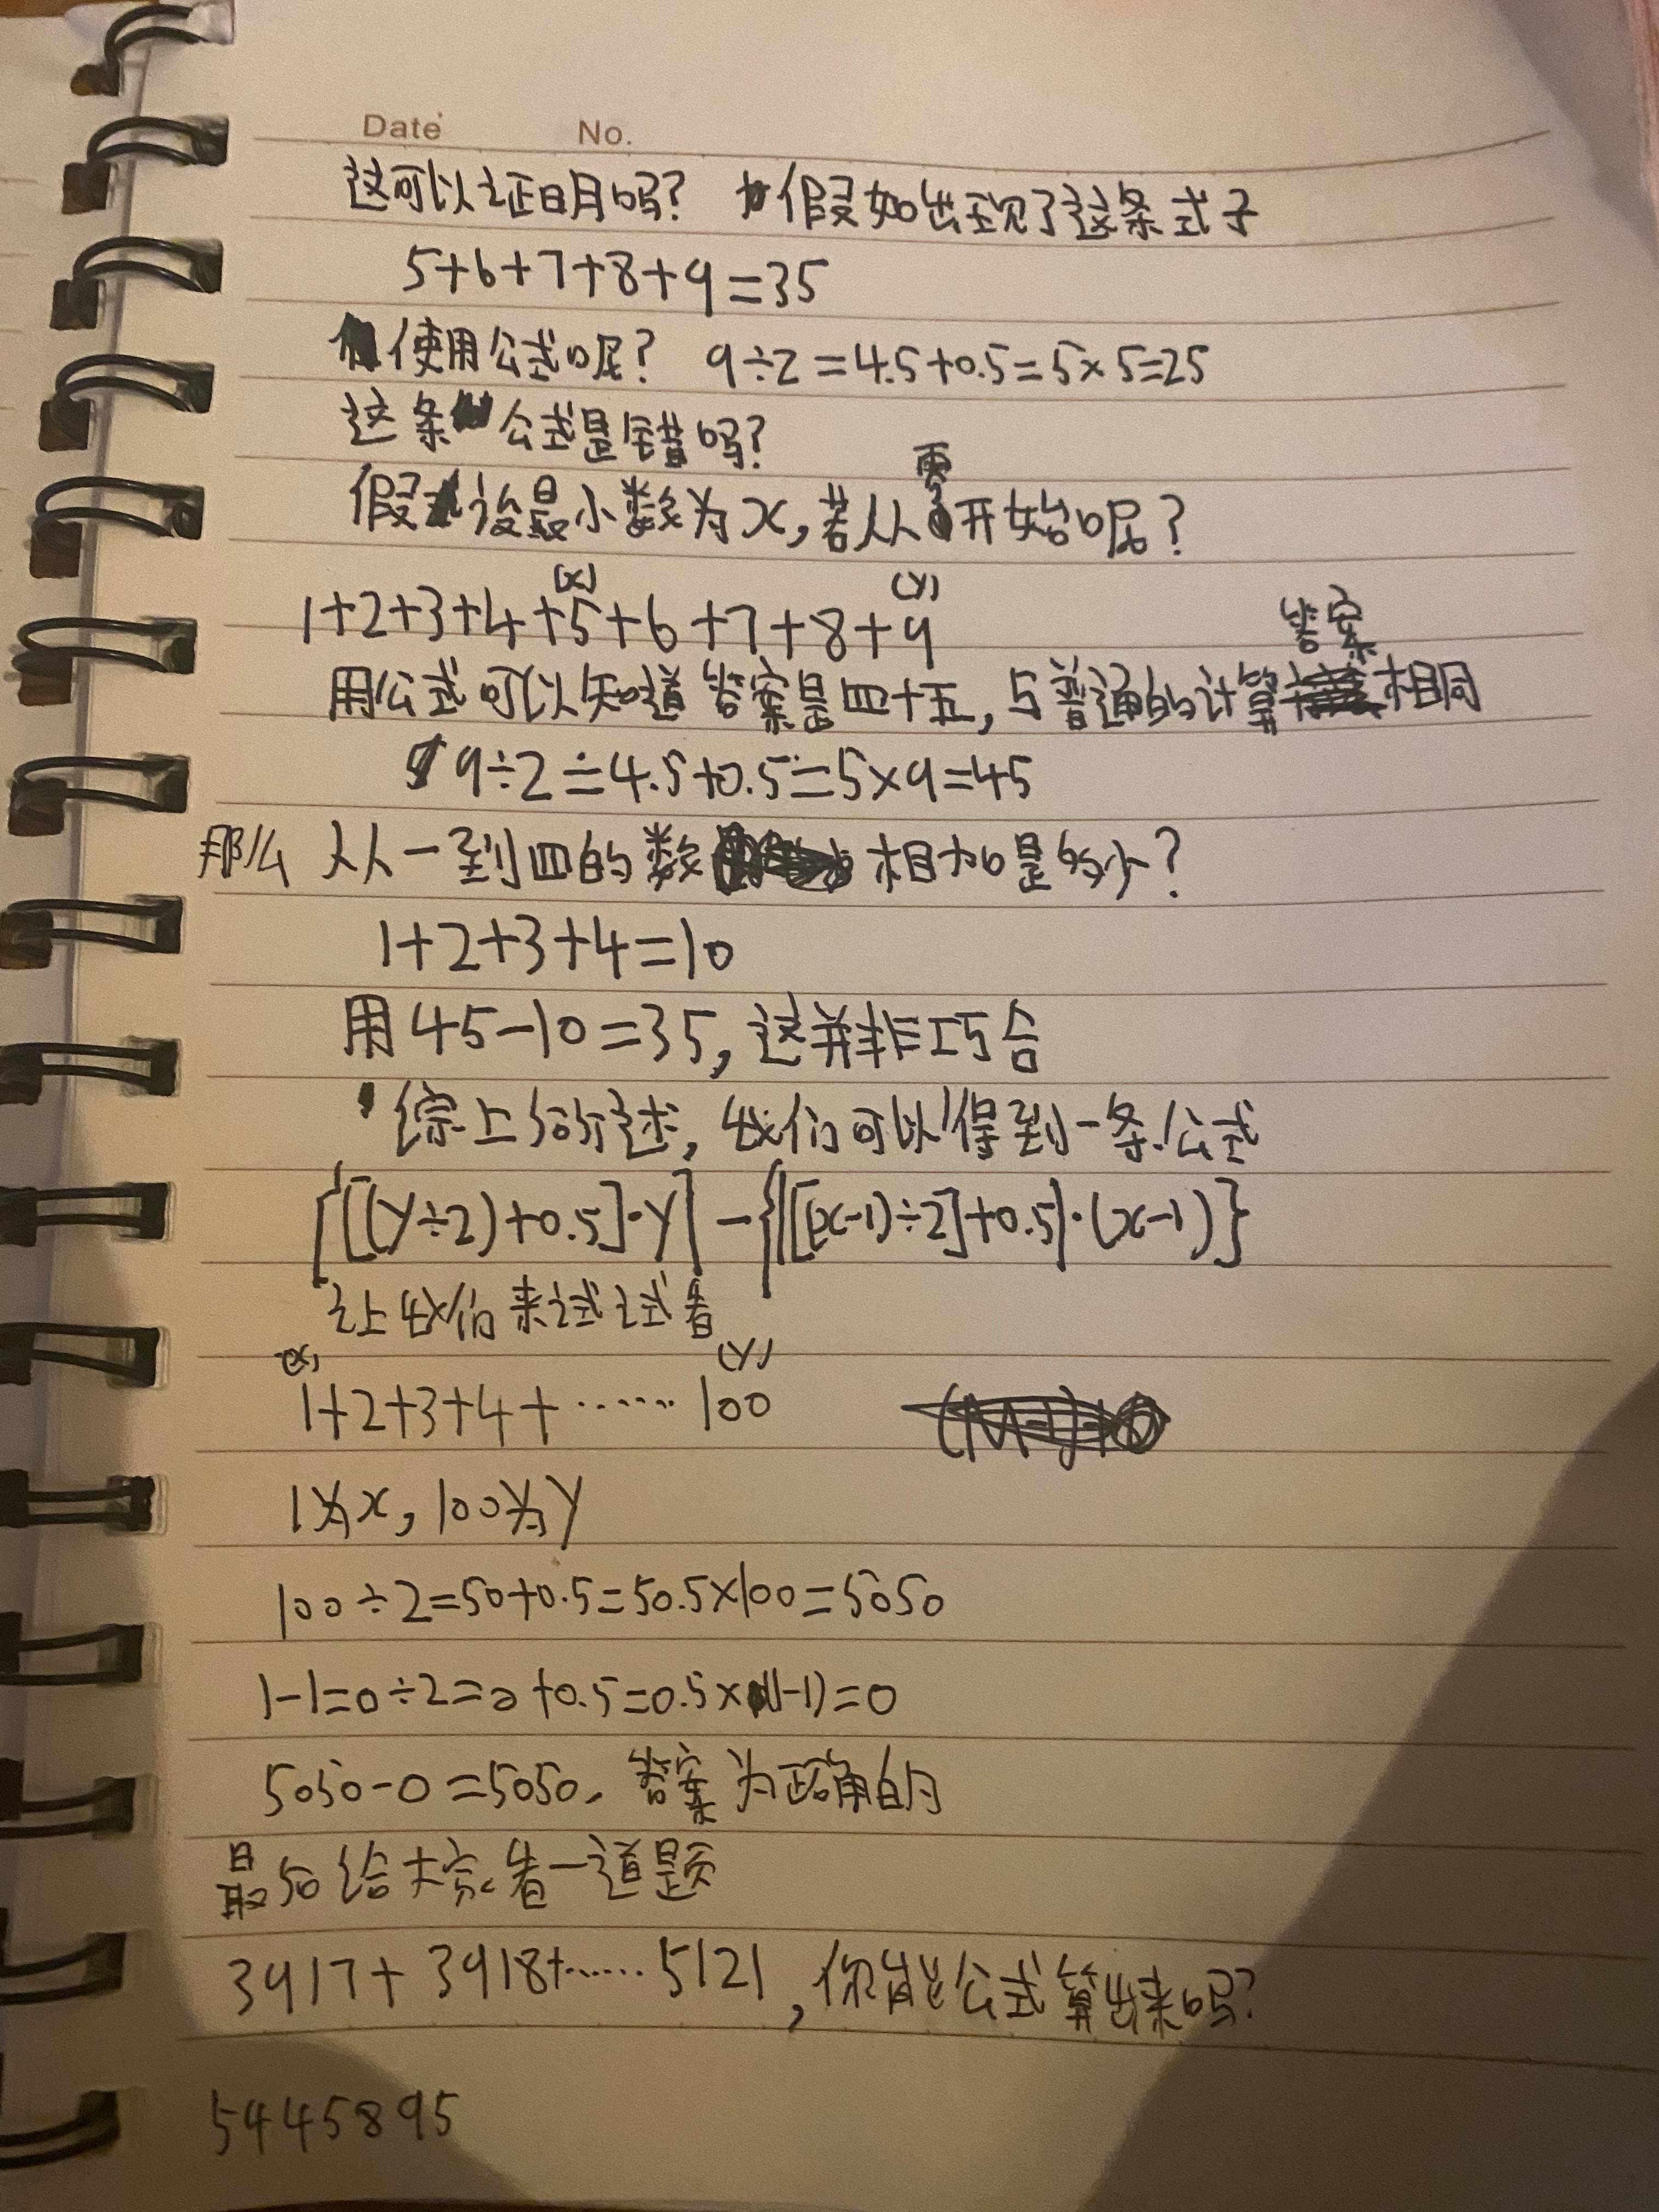 Date No.
这可以证明吗? 假如出现了这条式子
5+6+7+8+9=35
使用公式呢? 9÷2=4.5+0.5=5×5=25
这条公式是错吗?
零
假设最小数为x,若从开始呢?
(x) (y)
1+2+3+4+5+6+7+8+9
答案
用公式可以知道答案是四十五,与普通的计算相同
9÷2=4.5+0.5=5×9=45
那么从一到四的数相加是多少?
1+2+3+4=10
用45-10=35,这并非巧合
综上所述,我们可以得到一条公式
{[(y÷2)+0.5]·y}-{[[(x-1)÷2]+0.5]·(x-1)}
让我们来试试看
(x) (y)
1+2+3+4+……100
1为x,100为y
100÷2=50+0.5=50.5×100=5050
1-1=0÷2=0+0.5=0.5×(1-1)=0
5050-0=5050.答案为正确的
最后给大家看一道题
3917+3918+……5121,你能公式算出来吗?
5445895